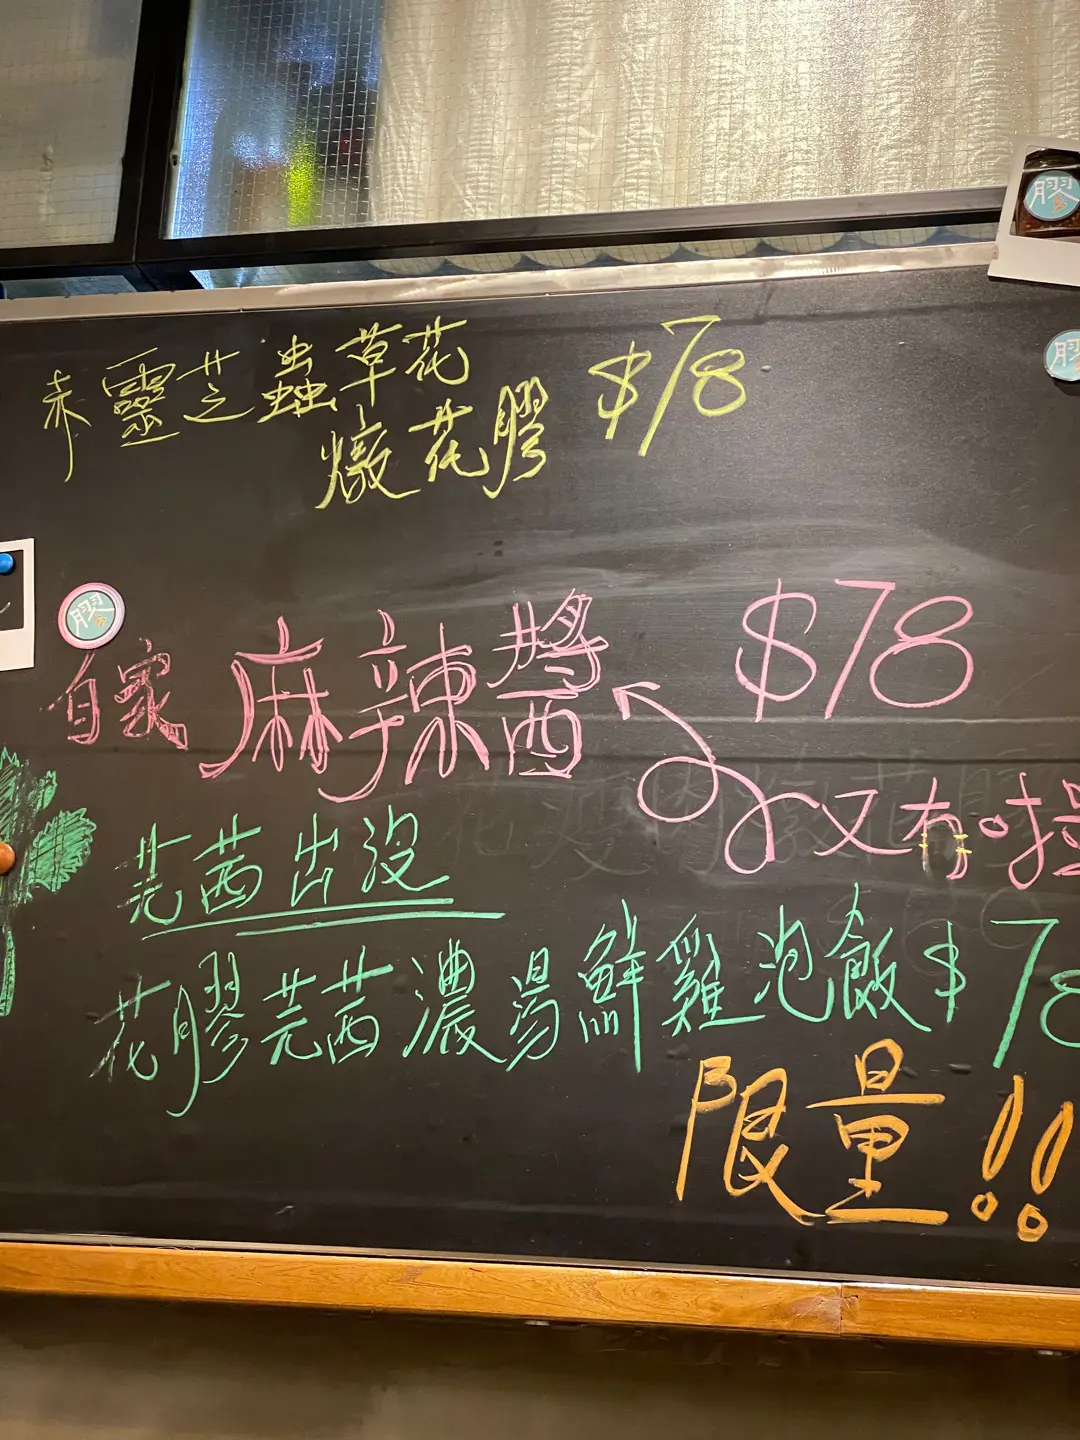 膠
膠
赤靈芝蟲草花
燉花膠 $78
膠
自家麻辣醬 $78
又有啦
芫茜出沒
花膠芫茜濃湯鮮雞泡飯 $78
限量!!